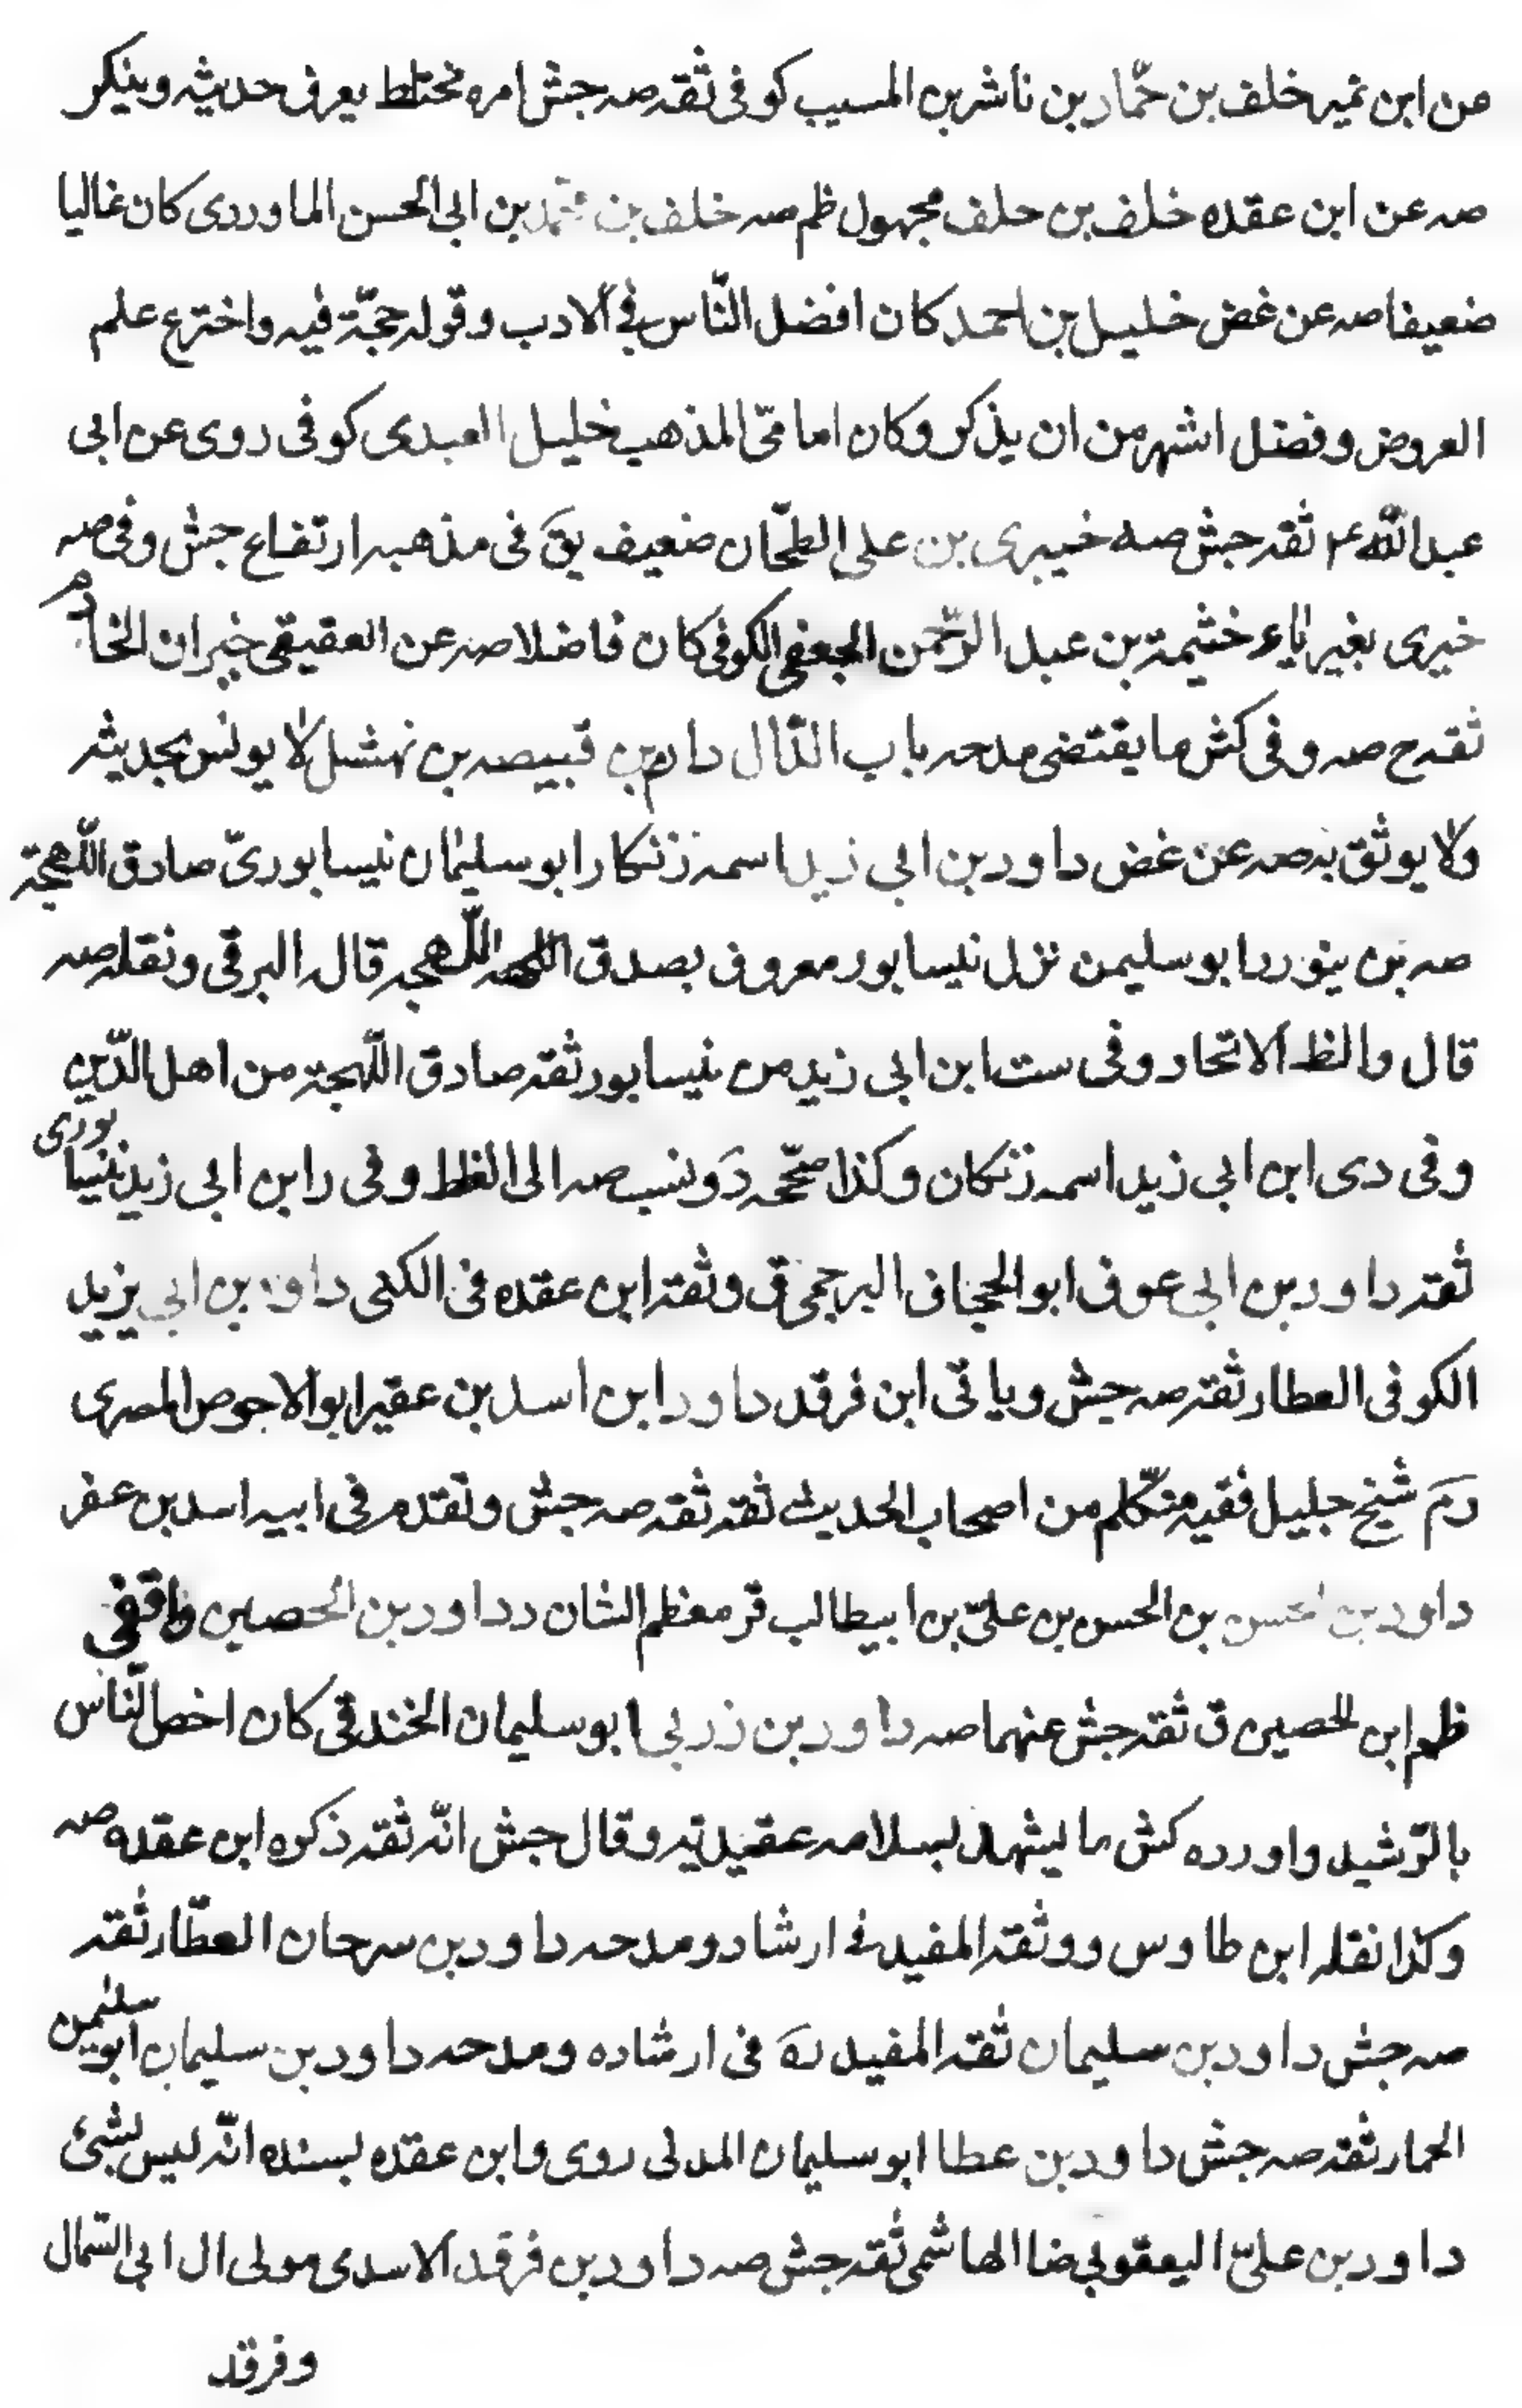 عن ابن نمير خلف بن حمّاد بن ناشر بن المسيب كوفى ثقه صه جش امره مختلط يعرف حديثه وينكر
صه عن ابن عقده خلف بن خلف مجهول ظم صه خلف بن محمّد بن ابى الحسن الماوردى كان غاليا
ضعيفا صه عن غض خليل بن احمد كان افضل النّاس فى الادب وقوله حجّة فيه واخترع علم
العروض وفضل اشهر من ان يذكر وكان امامىّ المذهب خليل العبدى كوفى روى عن ابى
عبد اللّه عم ثقه جش صه خيبرى بن على الطحّان ضعيف يقَ فى مذهبه ارتفاع جش وفى صه
خيرى بغير ياء خثيمة بن عبد الرّحمن الجعفى الكوفى كان فاضلا صه عن العقيقى خيران الخادم
ثقه ح صه وفى كش ما يقتضى مدحه باب الدّال دارم بن قبيصه بن نهشل لا يونس بحديثه
ولا يوثق به صه عن غض داود بن ابى زيد اسمه زنكار ابو سليمان نيسابورىّ صادق اللّهجة
صه بن ابو سليمن نزل نيسابور معروف بصدق اللّهجه قاله البرقى ونقله صه
قال والظ الاتحاد وفى ست ابن ابى زيد من نيسابور ثقه صادق اللّهجة من اهل الدّين
وفى دى ابن ابى زيد اسمه زنكان وكذا صحّحه دَ ونسب صه الى الغلط وفى د ابن ابى زيد نيسابورى
ثقه داود بن ابى عوف ابو الحجاف البرجمى ق وثقه ابن عقده فى الكنى داود بن ابى يزيد
الكوفى العطار ثقه صه جش وياتى ابن فرقد داود ابن اسد بن عفير ابو الاحوص المصرى
رمَ شيخ جليل فقيه متكلّم من اصحاب الحديث ثقه ثقه صه جش وتقدم فى ابيه اسد بن عفر
داود بن الحسن بن الحسن بن علىّ بن ابيطالب قر معظم الشان د داود بن الحصين واقفى
ظم ابن الحصين ق ثقه جش عنهما صه داود بن زربى ابو سليمان الخندقى كان اخص النّاس
بالرّشيد واورده كش ما يشهد بسلامه عقيدته وقال جش انّه ثقه ذكره ابن عقده صه
وكذا نقله ابن طاوس ووثقه المفيد فى ارشاد ومدحه داود بن سرحان العطّار ثقه
صه جش داود بن سليمان ثقه المفيد رهَ فى ارشاده ومدحه داود بن سليمان ابو سليمن
الحمار ثقه صه جش داود بن عطا ابو سليمان المدنى روى وابن عقده بسنده انّه ليس بشئ
داود بن علىّ اليعقوبى ضا الهاشمى ثقه جش صه داود بن فرقد الاسدى مولى ال ابى السّمال
وفرقد